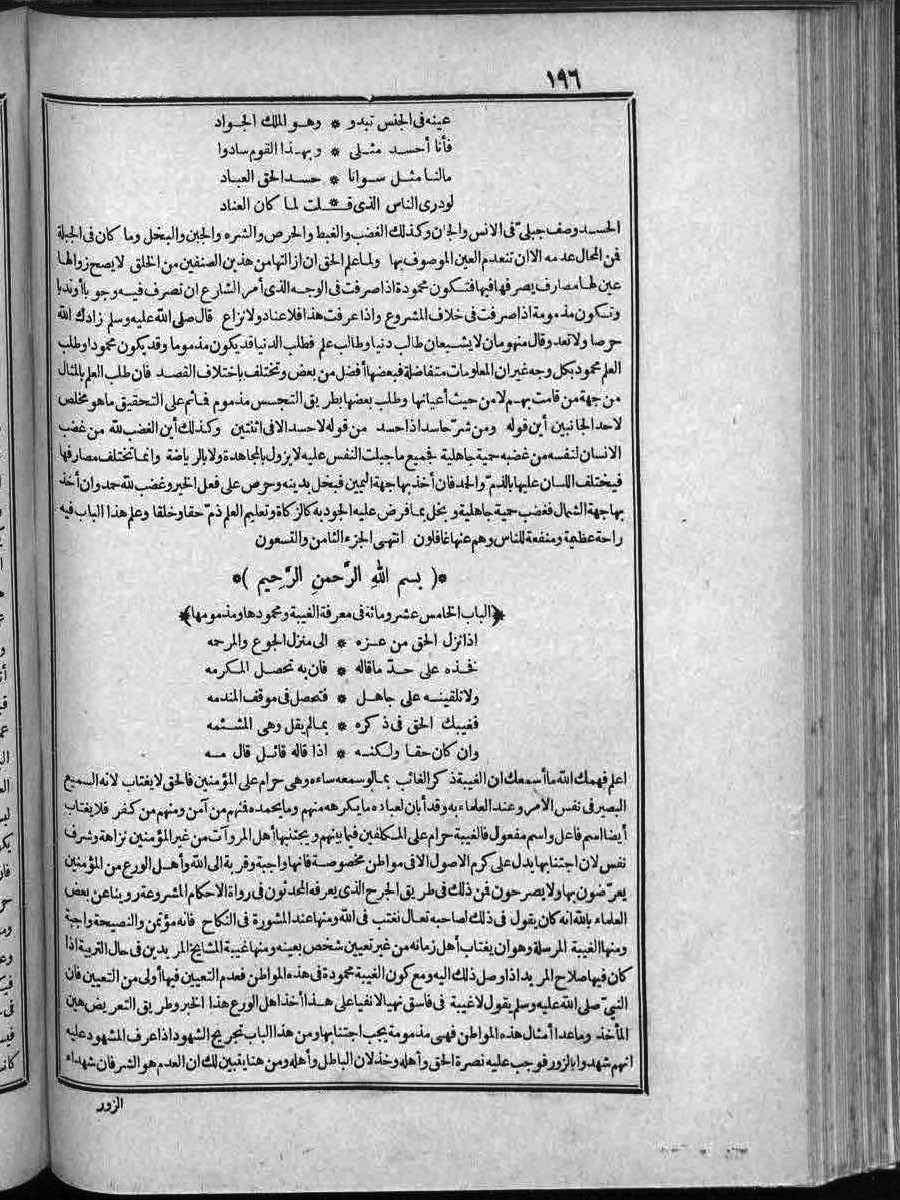 ١٩٦
عينه فى الجنس تبدو * وهو الملك الجواد
فأنا أحسد مثلى * وبهذا القوم سادوا
مالنا مثل سوانا * حسد الحق العباد
لودرى الناس الذى قلت * لما كان العناد
الحسد وصف جبلىّ فى الانس والجان وكذلك الغضب والغبط والحرص والشره والجبن والبخل وما كان فى الجبلة
فن المحال عدمه الا ان تنعدم العين الموصوف بها ولما علم الحق ان ازالتها من هذين الصنفين من الخلق لا يصح زوالها
عين لها مصارف يصرفها فيها فتكون محمودة اذا صرفت فى الوجه الذى أمر الشارع ان نصرف فيه وجوبا أو ندبا
وتكون مذمومة اذا صرفت فى خلاف المشروع واذا عرفت هذا فلا عناد ولا نزاع قال صلى الله عليه وسلم زادك الله
حرصا ولا تعد وقال منهومان لا يشبعان طالب دنيا وطالب علم فطلب الدنيا قد يكون مذموما وقد يكون محمودا وطلب
العلم محمود بكل وجه غير ان المعلومات متفاضلة فبعضها أفضل من بعض وتختلف باختلاف القصد فان طلب العلم بالمثال
من جهة من قامت بهم لا من حيث أعيانها وطلب بعضها بطريق التجسس مذموم فا ثم على التحقيق ما هو مخلص
لاحد الجانبين أين قوله ومن شرّ حاسد اذا حسد من قوله لا حسد الا فى اثنتين وكذلك أين الغضب لله من غضب
الانسان لنفسه من غضبه حمية جاهلية فجميع ما جبلت النفس عليه لا يزول بالمجاهدة ولا بالرياضة وانما تختلف مصارفها
فيختلف اللسان عليها بالذمّ والحمد فان أخذ بها جهة اليمين فبخل بدينه وحرص على فعل الخير وغضب لله حمد وان أخذ
بها جهة الشمال فغضب حمية جاهلية وبخل بما فرض عليه الجود به كالزكاة وتعليم العلم ذمّ حقا وخلقا وعلم هذا الباب فيه
راحة عظيمة ومنفعة للناس وهم عنها غافلون انتهى الجزء الثامن والتسعون
*( بسم اللهِ الرَّحمنِ الرَّحِيم )*
﴿الباب الخامس عشر ومائة فى معرفة الغيبة ومحمودها ومذمومها﴾
اذا نزل الحق من عزه * الى منزل الجوع والمرحمه
فخذه على حدّ ما قاله * فان به تحصل المكرمه
ولا تلقينه على جاهل * فتحصل فى موقف المندمه
فغيبك الحق فى ذكره * بما لم يقل وهى المشئمه
وان كان حقا ولكنه * اذا قاله قائل قال مه
اعلم فهمك الله ما أسمعك ان الغيبة ذكر الغائب بما لو سمعه ساءه وهى حرام على المؤمنين فالحق لا يغتاب لانه السميع
البصير فى نفس الامر وعند العلماء به وقد أبان لعباده ما يكرهه منهم وما يحمده فنهم من آمن ومنهم من كفر فلا يغتاب
أيضا اسم فاعل واسم مفعول فالغيبة حرام على المكلفين فيما بينهم ويجتنبها أهل المروآت من غير المؤمنين نزاهة وشرف
نفس لان اجتنابها يدل على كرم الاصول الا فى مواطن مخصوصة فانها واجبة وقربة الى الله وأهل الورع من المؤمنين
يعرّضون بها ولا يصرحون فن ذلك فى طريق الجرح الذى يعرفه المحدثون فى رواة الاحكام المشروعة روينا عن بعض
العلماء بالله انه كان يقول فى ذلك لصاحبه تعال نغتب فى الله ومنها عند المشورة فى النكاح فانه مؤتمن والنصيحة واجبة
ومنها الغيبة المرسلة وهو ان يغتاب أهل زمانه من غير تعيين شخص بعينه ومنها غيبة المشايخ المريدين فى حال التربية اذا
كان فيها صلاح المريد اذا وصل ذلك اليه ومع كون الغيبة محمودة فى هذه المواطن فعدم التعيين فيها أولى من التعيين فان
النبىّ صلى الله عليه وسلم يقول لا غيبة فى فاسق نهيا لا نفيا على هذا أخذ اهل الورع هذا الخبر وطريق التعريض هين
المأخذ وما عدا أمثال هذه المواطن فهى مذمومة يجب اجتنابها ومن هذا الباب تجريح الشهود اذا عرف المشهود عليه
انهم شهدوا بالزور فوجب عليه نصرة الحق وأهله وخذلان الباطل وأهله ومن هنا يتبين لك ان العدم هو الشر فان شهداء
الزور